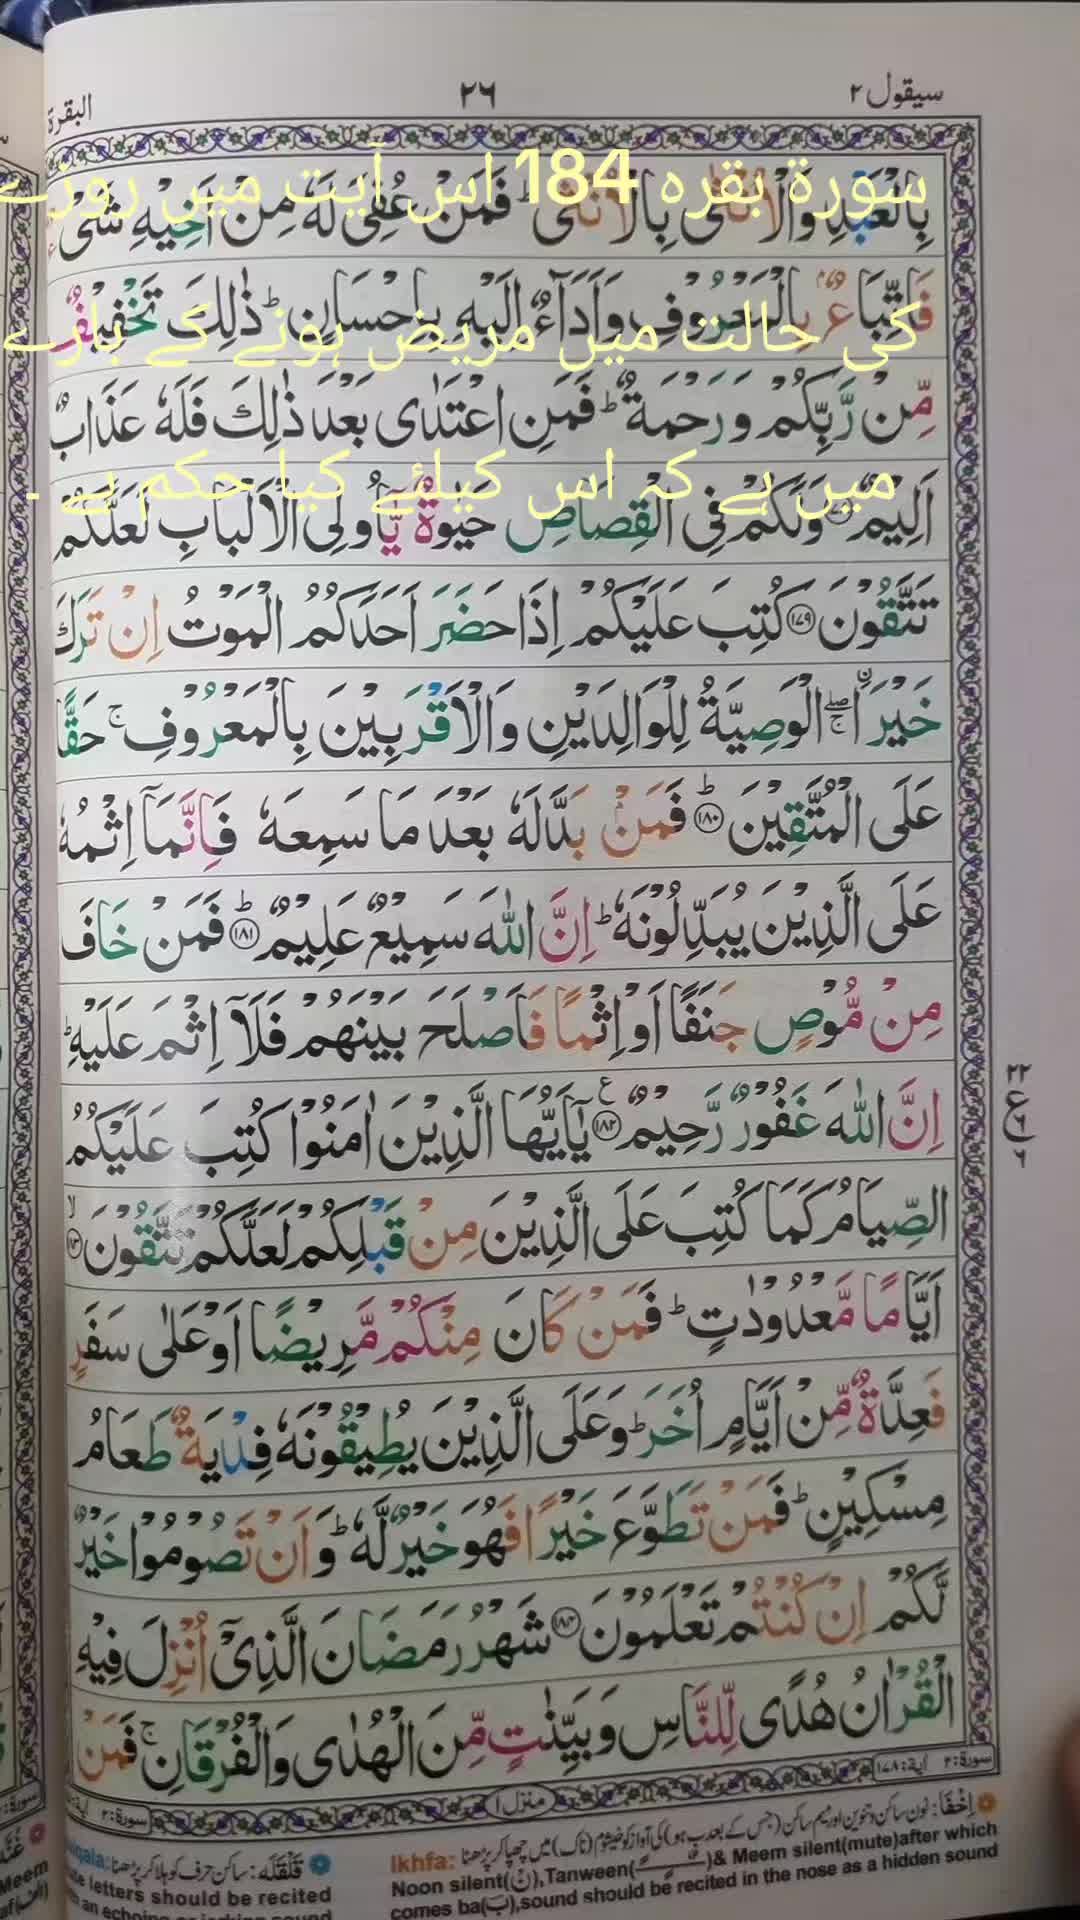 البقرة
٢٦
سيقول ٢
سورة بقرہ 184 اس آیت میں روزے
کی حالت میں مریض ہونے گے بارے
میں ہے کہ اس کیلئے کیا حکم ہے۔
بِالْعَبْدِ وَالْاُنْثٰى بِالْاُنْثٰى ؕ فَمَنْ عُفِىَ لَهٗ مِنْ اَخِيْهِ شَىْءٌ
فَاتِّبَاعٌۢ بِالْمَعْرُوْفِ وَاَدَآءٌ اِلَيْهِ بِاِحْسَانٍ ؕ ذٰلِكَ تَخْفِيْفٌ
مِّنْ رَّبِّكُمْ وَرَحْمَةٌ ؕ فَمَنِ اعْتَدٰى بَعْدَ ذٰلِكَ فَلَهٗ عَذَابٌ
اَلِيْمٌ وَلَكُمْ فِى الْقِصَاصِ حَيٰوةٌ يّٰٓاُولِى الْاَلْبَابِ لَعَلَّكُمْ
تَتَّقُوْنَ ١٧٩ كُتِبَ عَلَيْكُمْ اِذَا حَضَرَ اَحَدَكُمُ الْمَوْتُ اِنْ تَرَكَ
خَيْرَاۨ ۖۚ الْوَصِيَّةُ لِلْوَالِدَيْنِ وَالْاَقْرَبِيْنَ بِالْمَعْرُوْفِ ۚ حَقًّا
عَلَى الْمُتَّقِيْنَ ؕ ١٨٠ فَمَنْۢ بَدَّلَهٗ بَعْدَ مَا سَمِعَهٗ فَاِنَّمَآ اِثْمُهٗ
عَلَى الَّذِيْنَ يُبَدِّلُوْنَهٗ ؕ اِنَّ اللّٰهَ سَمِيْعٌ عَلِيْمٌ ؕ ١٨١ فَمَنْ خَافَ
مِنْ مُّوْصٍ جَنَفًا اَوْ اِثْمًا فَاَصْلَحَ بَيْنَهُمْ فَلَآ اِثْمَ عَلَيْهِ ؕ
اِنَّ اللّٰهَ غَفُوْرٌ رَّحِيْمٌ ١٨٢ ع يٰٓاَيُّهَا الَّذِيْنَ اٰمَنُوْا كُتِبَ عَلَيْكُمُ
٢٢
ع
٦
٦
الصِّيَامُ كَمَا كُتِبَ عَلَى الَّذِيْنَ مِنْ قَبْلِكُمْ لَعَلَّكُمْ تَتَّقُوْنَ ۙ ١٨٣
اَيَّامًا مَّعْدُوْدٰتٍ ؕ فَمَنْ كَانَ مِنْكُمْ مَّرِيْضًا اَوْ عَلٰى سَفَرٍ
فَعِدَّةٌ مِّنْ اَيَّامٍ اُخَرَ ؕ وَعَلَى الَّذِيْنَ يُطِيْقُوْنَهٗ فِدْيَةٌ طَعَامُ
مِسْكِيْنٍ ؕ فَمَنْ تَطَوَّعَ خَيْرًا فَهُوَ خَيْرٌ لَّهٗ ؕ وَاَنْ تَصُوْمُوْا خَيْرٌ
لَّكُمْ اِنْ كُنْتُمْ تَعْلَمُوْنَ ١٨٤ شَهْرُ رَمَضَانَ الَّذِىْٓ اُنْزِلَ فِيْهِ
الْقُرْاٰنُ هُدًى لِّلنَّاسِ وَبَيِّنٰتٍ مِّنَ الْهُدٰى وَالْفُرْقَانِ ۚ فَمَنْ
سورة: ٢ آية: ١٧٨
منزل ١
سورة: ٢
اِخْفَا: نون ساکن، تنوین اور میم ساکن (جس کے بعد ب ہو) کی آواز کو خیشوم (ناک) میں چھپا کر پڑھنا
Ikhfa:
Noon silent(نْ),Tanween(ـًـٍـٌ)& Meem silent(mute)after which
comes ba(ب),sound should be recited in the nose as a hidden sound
قَلْقَلَه: ساکن حرف کو ہلا کر پڑھنا
letters should be recited